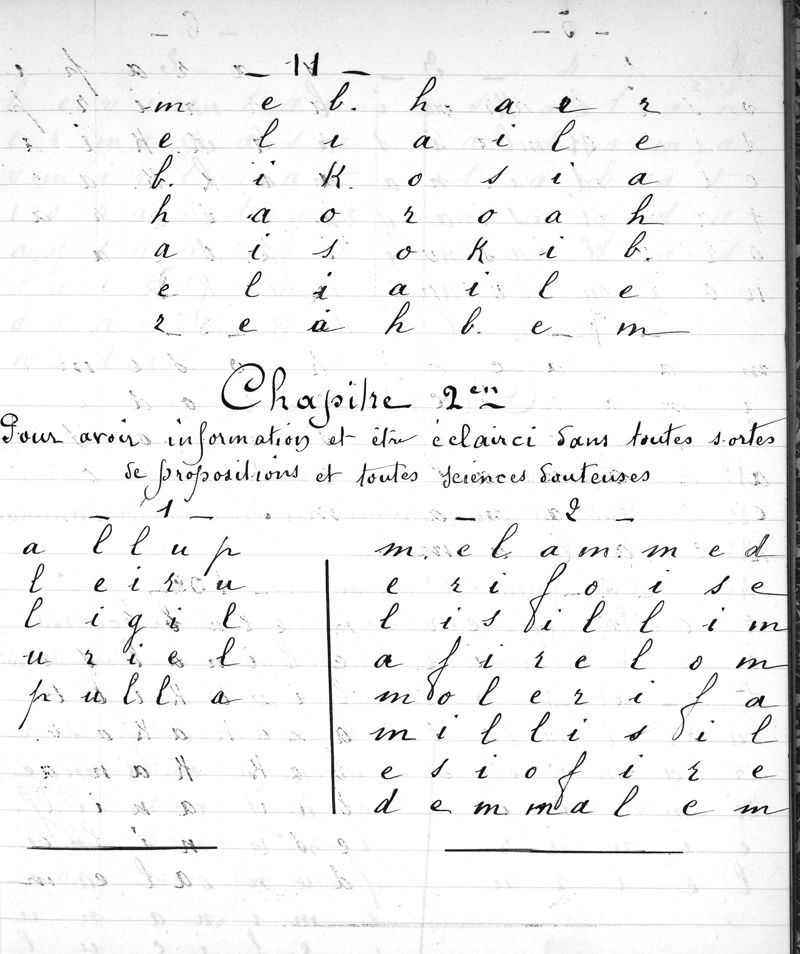 - 11 -
m e b. h. a e r
e l i a i l e
b. i K. o s i a
h a o r o a h
a i s. o K i b.
e l i a i l e
r e a h b. e m
Chapitre 2en
Pour avoir information et être éclairci dans toutes sortes
de propositions et toutes sciences douteuses
- 1 -
a l l u p
l e i r u
l i g i l
u r i e l
p u l l a
- 2 -
m. e l a m: m e d
e r i f o i s e
l i s i l l i m
a f i r e l o m
m o l e r i f a
m i l l i s i l
e s i o f i r e
d e m m a l e m